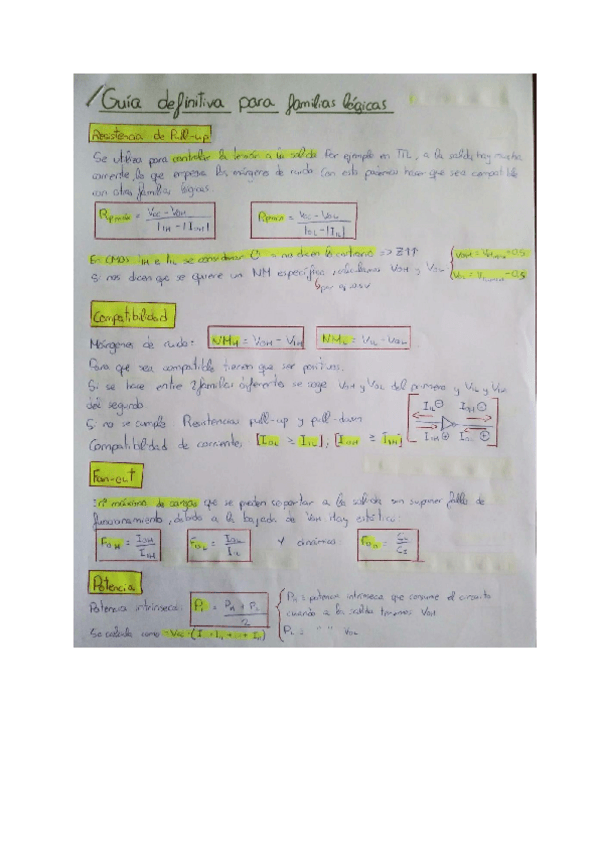 Guía definitiva para familias lógicas
Resistencia de Pull-up
Se utiliza para controlar la tensión a la salida. Por ejemplo en TTL, a la salida hay mucha
corriente, lo que empeora los márgenes de ruido. Con esto podemos hacer que sea compatible
con otras familias lógicas.
Rpmáx = VCC - VOH / IIH - |IOH| Rpmin = VCC - VOL / IOL - |IIL|
En CMOS IIH e IIL se consideran 0 si no dicen lo contrario => Z↑↑
Si nos dicen que se quiere un NM específico, calculamos VOH y VOL
por ej 0.5V
Compatibilidad
Márgenes de ruido: NMH = VOH - VIH NML = VIL - VOL
Para que sea compatible tienen que ser positivos.
Si se hace entre 2 familias diferentes se coge VOH y VOL del primero y VIL y
del segundo.
Si no se cumple: Resistencias pull-up y pull-down
Compatibilidad de corrientes [IOL ≥ IIL]; [IOH ≥ IIH]
IIL ⊖ IOH ⊖
IIH ⊕ IOL ⊕
Fan-out
nº máximo de cargas que se pueden conectar a la salida sin suponer fallo de
funcionamiento, debido a la bajada de VOH. Hay estático:
FOH = IOH / IIH FOL = IOL / IIL y dinámico:
Potencia
Potencia intrínseca: Pi = PH + PL / 2
PH = potencia intrínseca que consume el circuito
cuando a la salida tenemos VOH
PL = " " VOL
Se calcula como